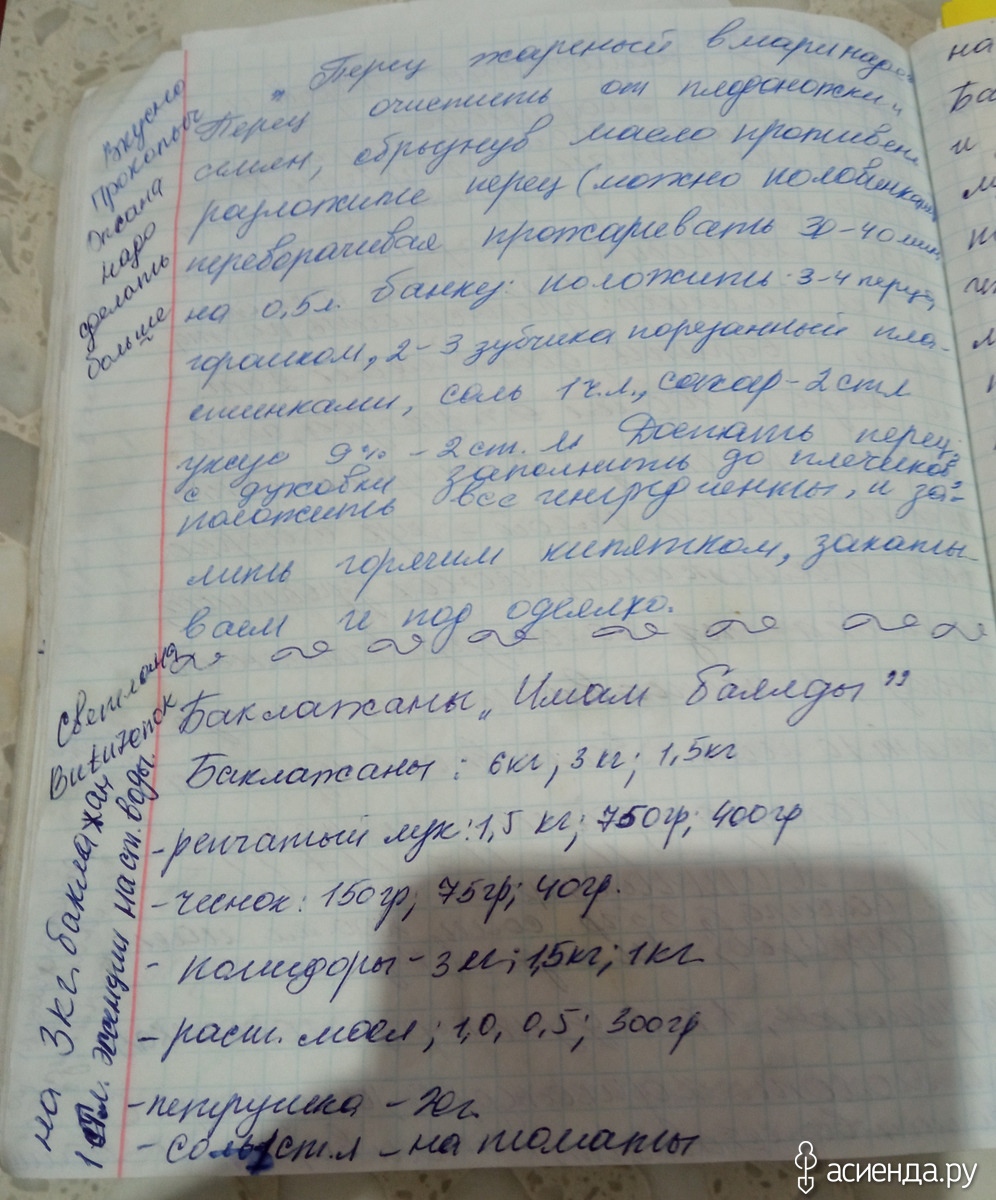 „Перец жареный в маринаде
Перец очистить от плодоножки и
семян, сбрызнув масло противень
разложите перец (можно половинками
переворачивая прожаривать 30-40 мин
на 0,5л. банку: положить 3-4 перца,
горошком, 2-3 зубчика порезанный пла-
стинками, соль 1ч.л., сахар-2стл
уксус 9% -2ст.л Достать перец
с духовки заполнить до плечиков
положить все ингредиенты, и за-
лить горячим кипятком, закаты
ваем и под одеялко.
Вкусно
Прокопьев
Оксана
надо
сделать
больше
Баклажаны „Имам баялды"
Баклажаны: 6кг; 3кг; 1,5кг
-репчатый лук: 1,5 кг; 750гр; 400гр
-чеснок: 150гр; 75гр; 40гр.
- помидоры-3кг; 1,5кг; 1кг
- раст. масл; 1,0, 0,5; 300гр
-петрушка -20г.
-соль 1ст.л -на томаты
Светлана
на 3кг. баклажан
1 ст.л. эссенции на ст. воды.
на
Ба
и
асиенда.ру